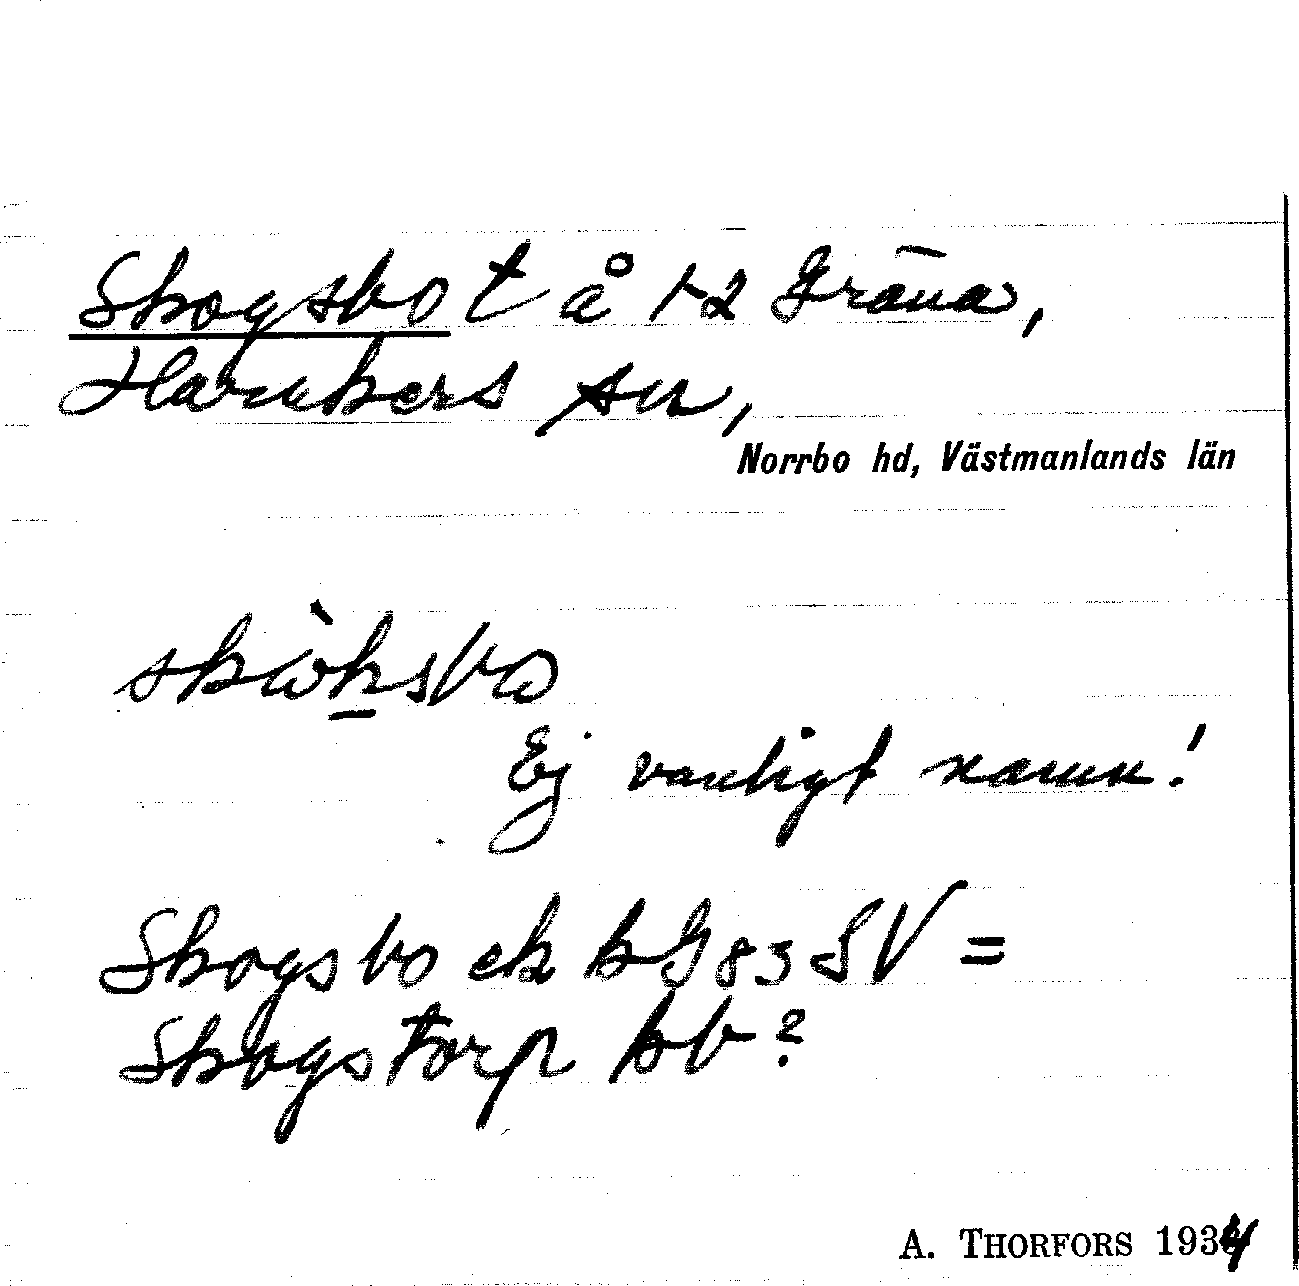 Skogsbo t å 1-2 Gräna,
Harakers sn,
Norrbo hd, Västmanlands län
Ej vanligt namn!
Skogsbo ek bG 83 SV =
Skogstorp bb?
A. THORFORS 1934